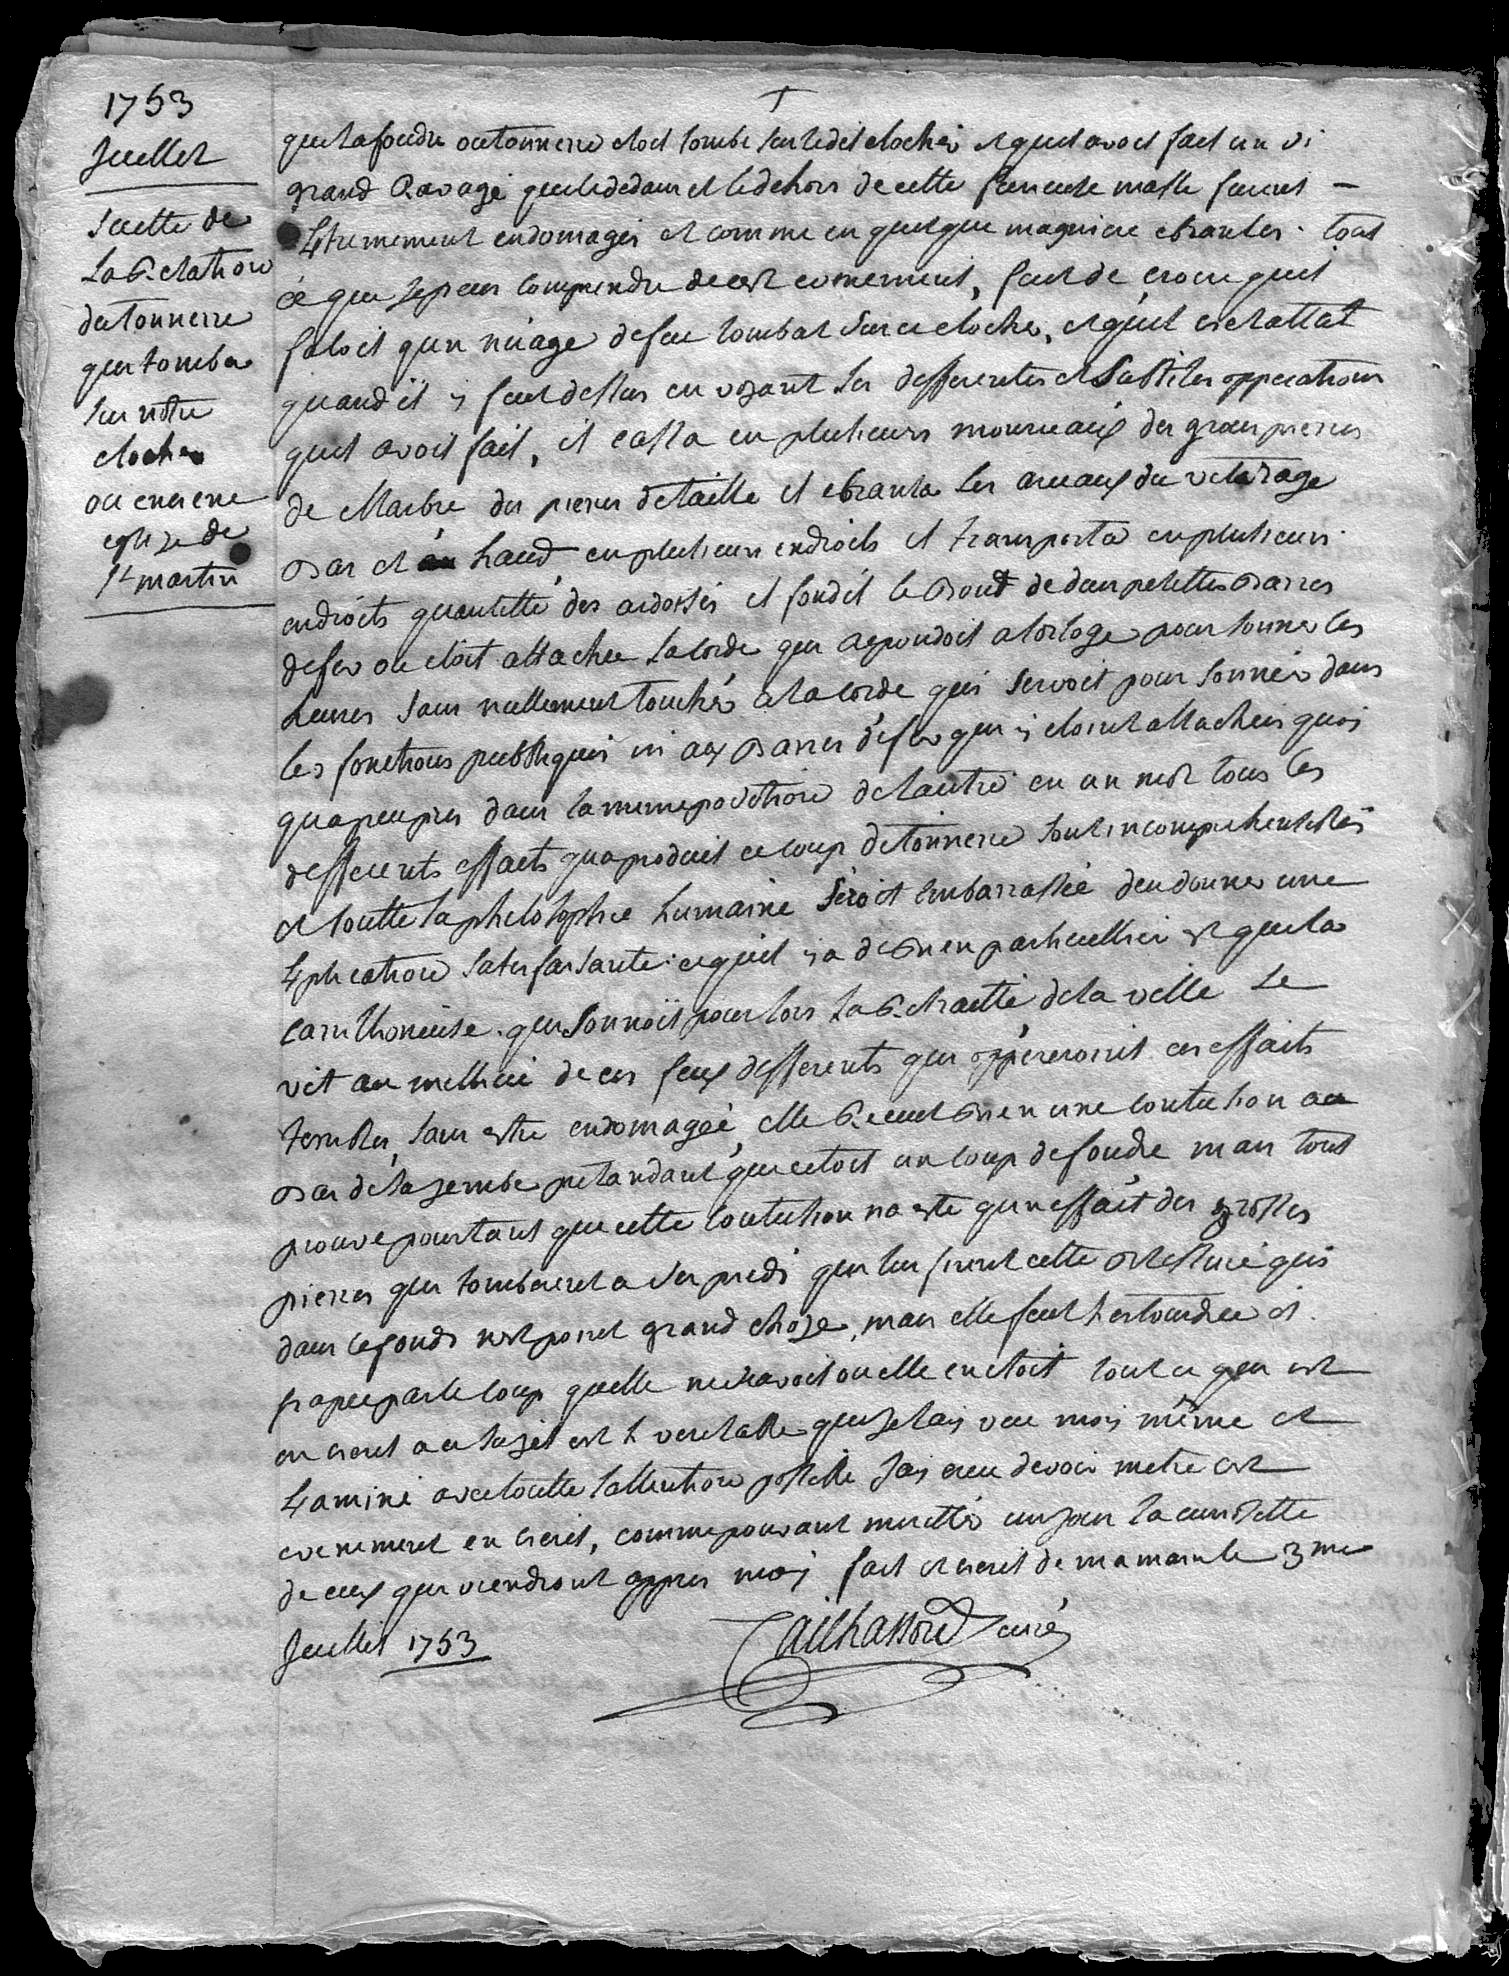 1753
Juellet
Suitte de
la Relation
du tonnerre
qui tomba
sur notre
clocher
ou encienne
eglize de
St martin
que la foudre ou tonnerre etoit tombé sur le dit clocher et quil avoit fait un si
grand Ravage que le dedans et le dehors de cette fameuse masse furent
extremement endomagés et comme en quelque magniere ebranlés. tout
cé que je peus comprendre de cest evenement, feut de croire quil
faloit qun nüage de feu tombat sur ce clocher, et quil esclattat
quand il y feut dessus en voyant les differentes et subtiles opperations
quil avoit fait, il cassa en plusieurs mourceaux des gran pierres
de Marbre des pierres de taille il ebranla les arceaux du vitarage
bas et haud en plusieurs endroits il transporta en plusieurs
endroits quantitté des ardoisés il fondit le bout de deux petittes barres
de fer ou étoit attachée la corde qui repondoit a lorloge pour sonner les
heures sans nullement touchér a la corde qui servoit pour sonnér dans
les fonctions publiques ni aux barres défer qui y etoint attachées quoi
qua peu prés dans la meme position de lautre en un mot tous les
differents effaets qua produit ce coup de tonnerre sont incomprehensibles
et toutte la philosophie humaine séroit embarrassée den donner une
explication satisfaisante. ce quil y a de bien particullier est que la
carilhoneuse. qui sonnoit pour lors la Retraitte de la ville se
vit au millieu de ces feux differents qui oppereroint ces effaits
terribles, sans estre endomagée, elle Receut bien une contution au
bas de la jembe pretandant que cetoit un coup de foudre mais tout
prouve pourtant que cette contution na esté qun effait des grosses
pierres qui tomberent a ses pieds qui lui firent cette blessure qui
dans le fonds nest point grand choze, mais elle feut si estourdie et
frapée par le coup quelle ne scavoit ou elle en etoit tout ce qui est
en escrit a ce sujet est si veritable que je lai veu moi même et
examiné avec toutte lattention possible jai creu devoir metre cest
evenement en escrit, comme pouvant meritér un jour la curiositté
de ceux qui viendront appres moi fait et escrit de ma main le 3me
Juellet 1753
Cailhassou curé